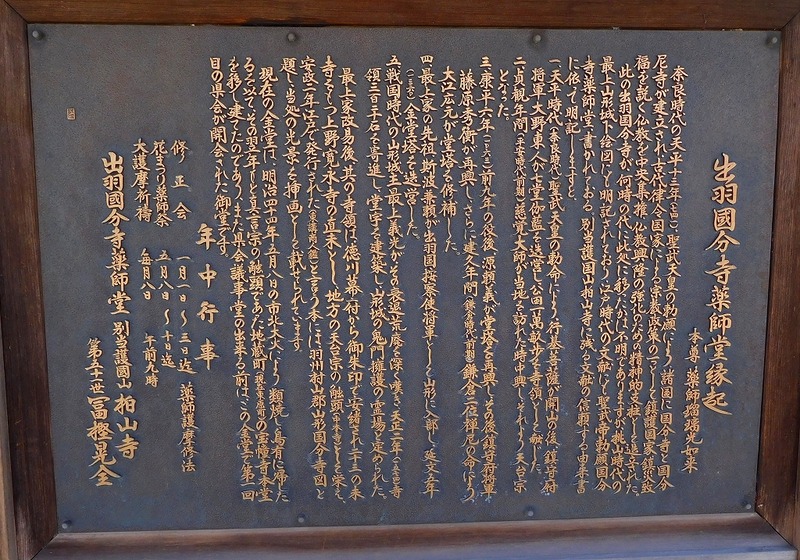 出羽國分寺薬師堂縁起
本尊 薬師瑠璃光如来
奈良時代の天平十三年(七四一)、聖武天皇の勅願により諸国に国分寺と国分
尼寺が建立され、古代律令国家による守教政策の一つとして鎮護国家、鎮災致
福を説く仏教を中央集権、仏教興隆の強化のための精神的支柱として進められた。
此の出羽国分寺が何時の代に此処に移ったかは不明でありますが、桃山時代の
最上山形城下絵図に明記されており、江戸時代の文献に「聖武帝勅願国分
寺薬師堂」と書かれており、別当護国山柏山寺に残る文献の信頼する由来書
に依って明記しますと、
一、天平時代(奈良時代)聖武天皇の勅命により、行基菩薩が開山の後、鎮守府
将軍大野東人が七堂伽藍を造営し、公田一万畝歩を寺領として献じた。
二、貞観年間(平安時代前期)慈覚大師が当地を訪れた時中興し、それより天台宗
となった。
三、康平六年(一〇六三)前九年の役後、源頼義が堂塔を再興し、その後鎮守府将軍
藤原秀衡が再興し、さらに建久年間(鎌倉時代前期)鎌倉二位禅尼の命により、
大江広元が堂塔を修補した。
四、最上家の先祖斯波兼頼が出羽国按察使将軍として山形に入部し、延文五年
(一三六〇)金堂塔を造営した。
五、戦国時代の山形城主最上義光が、その衰退荒廃を深く嘆き、天正二年(一五七四)寺
領三百二十石を寄進し、堂宇を建築し、山形城の鬼門擁護の霊場と定められた。
最上家改易後、其の寺領は徳川幕府から御朱印を安堵され、二十三の末
寺をしたがえ上野寛永寺の直末として、地方の天台宗の触頭(中本寺)として栄え、
安政二年江戸で発行された(東講商人鑑)と言う本には、羽州村山郡山形国分寺図と
題し、当処の光景を挿画として載せられています。
現在の金堂は、明治四十四年五月八日の市北大火により類焼し、烏有に帰した
るを以て、その翌年もと真言宗の触頭であった地蔵町の宝幢寺本堂
を移し建てたのであり、また県会議事堂の出来る前はこの金堂で第一回
目の県会が開会された御堂です。
年中行事
修正会 一月一日〜三日迄 薬師護摩修法
花まつり薬師祭 五月八日〜十日迄
大護摩祈祷 毎月八日 午前九時
出羽國分寺薬師堂 別当護國山 柏山寺
第五十一世 冨樫晃全